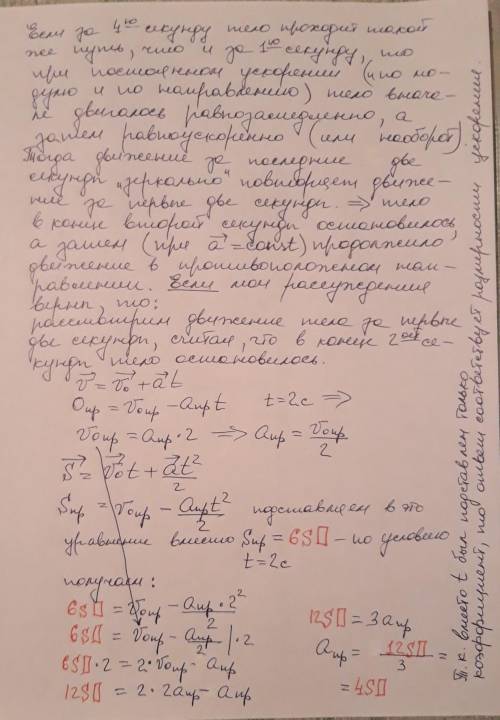 Если за 4ую секунду тело проходит такой
же путь, что и за 1ую секунду, то
при постоянном ускорении (и по мо-
дулю и по направлению) тело внача-
ле двигалось равнозамедленно, а
затем равноускоренно (или наоборот).
Тогда движение за последние две
секунды "зеркально" повторяет движе-
ние за первые две секунды. ⇒ тело
в конце второй секунды остановилось,
а затем (при a⃗ = const) продолжило
движение в противоположном нап-
равлении. Если мои рассуждения
верны, то:
рассмотрим движение тела за первые
две секунды, считая, что в конце 2ой се-
кунды тело остановилось.
v⃗ = v⃗₀ + a⃗t
Oпр = v₀пр - aпр t t = 2c ⇒
v₀пр = aпр · 2 ⇒ aпр = v₀пр/2
S⃗ = v⃗₀t + a⃗t²/2
Sпр = v₀пр - aпр t²/2 подставляем в это
уравнение вместо Sпр = 6S[] - по условию
t = 2c
получаем:
6S[] = v₀пр - aпр · 2²/2
6S[] = v₀пр - aпр/2 | · 2
6S[] · 2 = 2 · v₀пр - aпр
12S[] = 2 · 2aпр - aпр
12S[] = 3aпр
aпр = 12S[]/3 =
= 4S[]
Т.к. вместо t был подставлен только
коэффициент, то ответ соответствует размерности ускорения.